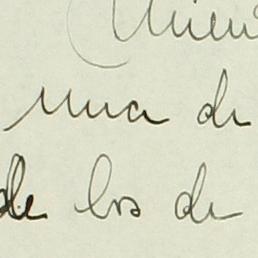 una de
de los de